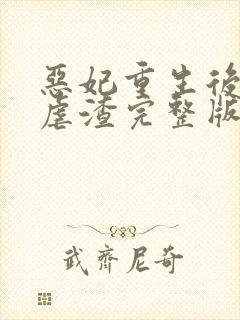 惡妃重生後
虐渣完整版
武齊尼奇